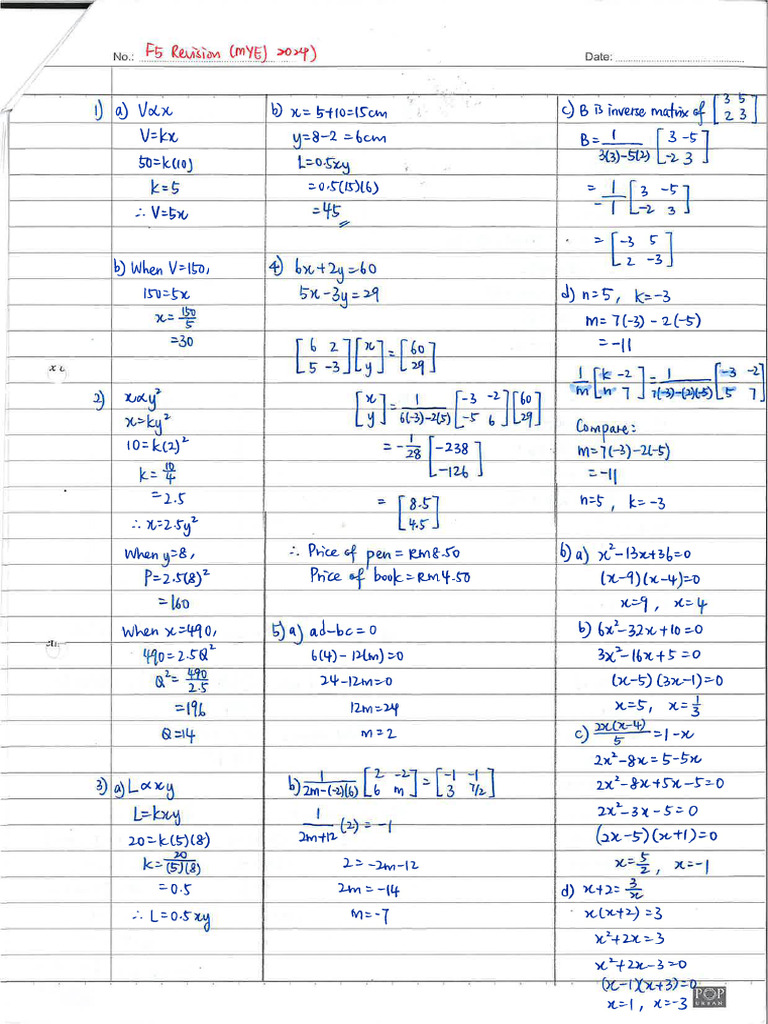 No.: F5 Revision (MYE) 2024)
Date:
1) a) V∝x
V=kx
50=k(10)
k=5
∴ V=5x
b) When V=150,
150=5x
x=150/5
=30
2) x∝y²
x=ky²
10=k(2)²
k=10/4
=2.5
∴ x=2.5y²
When y=8,
P=2.5(8)²
=160
When x=490,
490=2.5Q²
Q²=490/2.5
=196
Q=14
3) a) L∝xy
L=kxy
20=k(5)(8)
k=20/(5)(8)
=0.5
∴ L=0.5xy
b) x=5+10=15cm
y=8-2=6cm
L=0.5xy
=0.5(15)(6)
=45
4) 6x+2y=60
5x-3y=29
[6 2; 5 -3][x; y]=[60; 29]
[x; y]=1/6(-3)-2(5) [-3 -2; -5 6][60; 29]
=-1/28 [-238; -126]
=[8.5; 4.5]
∴ Price of pen=RM8.50
Price of book=RM4.50
5) a) ad-bc=0
6(4)-12(m)=0
24-12m=0
12m=24
m=2
b) 1/2m-(-2)(6) [2 -2; 6 m]=[-1 -1; 3 7/2]
1/2m+12 (2)=-1
2=-2m-12
2m=-14
m=-7
c) B is inverse matrix of [3 5; 2 3]
B=1/3(3)-5(2) [3 -5; -2 3]
=1/-1 [3 -5; -2 3]
=[-3 5; 2 -3]
d) n=5, k=-3
m=7(-3)-2(-5)
=-11
1/m [k -2; n 7]=1/7(-3)-(2)(-5) [-3 -2; 5 7]
Compare:
m=7(-3)-2(-5)
=-11
n=5, k=-3
6) a) x²-13x+36=0
(x-9)(x-4)=0
x=9, x=4
b) 6x²-32x+10=0
3x²-16x+5=0
(x-5)(3x-1)=0
x=5, x=1/3
c) 2x(x-4)/5=1-x
2x²-8x=5-5x
2x²-8x+5x-5=0
2x²-3x-5=0
(2x-5)(x+1)=0
x=5/2, x=-1
d) x+2=3/x
x(x+2)=3
x²+2x=3
x²+2x-3=0
(x-1)(x+3)=0
x=1, x=-3
POP
URBAN